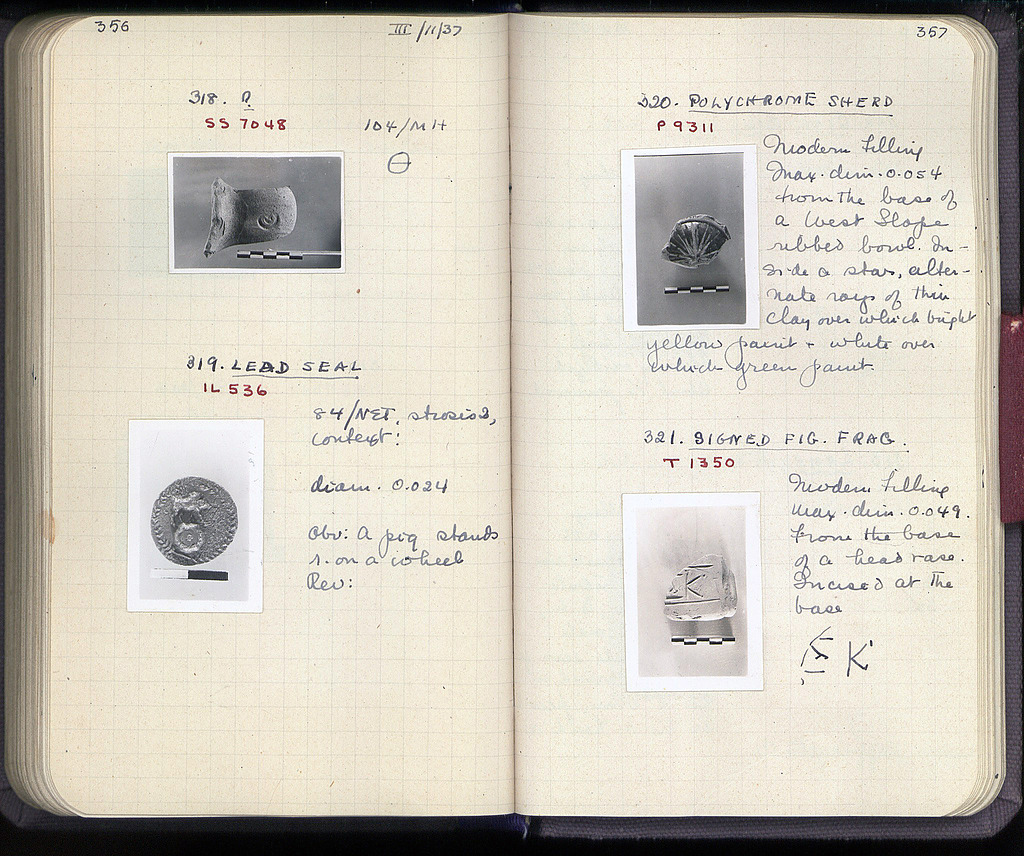 356
III/11/37
318.
SS 7048
104/MH
Θ
319. LEAD SEAL
IL 536
84/NET, strosis 2,
context:
diam. 0.024
Obv: A pig stands
r. on a wheel
Rev:
357
320. POLYCHROME SHERD
P 9311
Modern Filling
Max. dim. 0.054
From the base of
a West Slope
ribbed bowl. In-
side a star, alter-
nate rays of thin
clay over which bright
yellow paint + white over
which green paint.
321. SIGNED FIG. FRAG.
T 1350
Modern Filling
Max. dim. 0.049.
From the base
of a head vase.
Incised at the
base
K